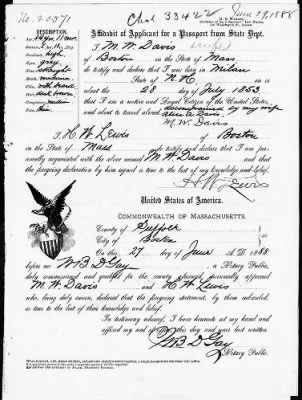 No. 20571
Chd 33422
June 29, 1888
Affidavit of Applicant for a Passport from State Dept.
I, M. W. Davis
of Boston in the State of Mass
do testify and declare that I was born in Milan
in the State of N. H.
on or about the 28 day of July 1853
that I am a native and Loyal Citizen of the United States,
and about to travel abroad, accompanied by my wife
Alice A. Davis.
M. W. Davis
I, H W Lewis of Boston
in the State of Mass do testify and declare that I am
personally acquainted with the above named M. W. Davis and that the
foregoing declaration by him signed is true to the best of my knowledge and belief.
H W Lewis
United States of America.
COMMONWEALTH OF MASSACHUSETTS.
County of Suffolk
City of Boston
On this 27 day of June A. D. 1888
before me M B D Gay, a Notary Public,
duly commissioned and qualified for the county aforesaid, personally appeared
M W Davis and H W Lewis
who, being duly sworn, declared that the foregoing statement, by them subscribed,
is true to the best of their knowledge and belief.
In testimony whereof, I have hereunto set my hand and
affixed my seal of the day and year last written.
M B D Gay
Notary Public.